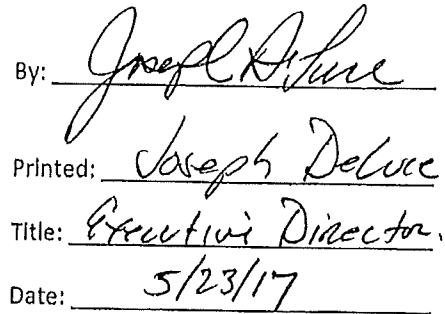 By: Joseph DeLuce
Printed: Joseph DeLuce
Title: Executive Director.
Date: 5/23/17